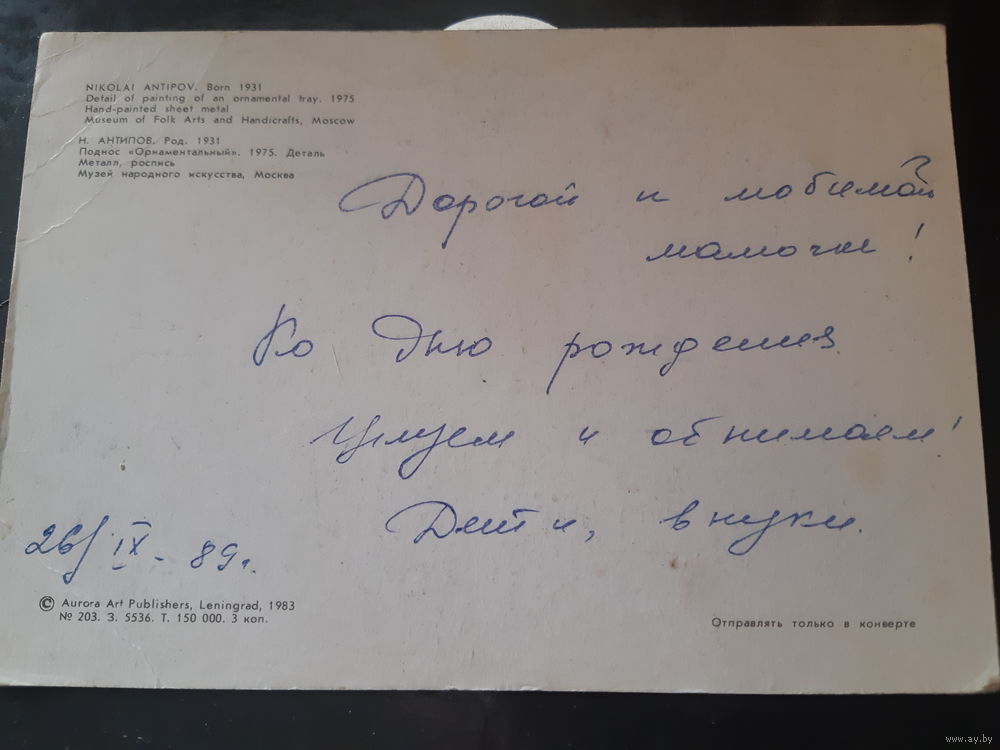 NIKOLAI ANTIPOV. Born 1931
Detail of painting of an ornamental tray. 1975
Hand-painted sheet metal
Museum of Folk Arts and Handicrafts, Moscow
Н. АНТИПОВ. Род. 1931
Поднос «Орнаментальный». 1975. Деталь
Металл, роспись
Музей народного искусства, Москва
Дорогой и любимой
мамочке!
Ко Дню рождения.
Целуем и обнимаем!
Дети, внуки.
26/IX - 89г.
© Aurora Art Publishers, Leningrad, 1983
№ 203. З. 5536. Т. 150 000. 3 коп.
Отправлять только в конверте
www.ay.by